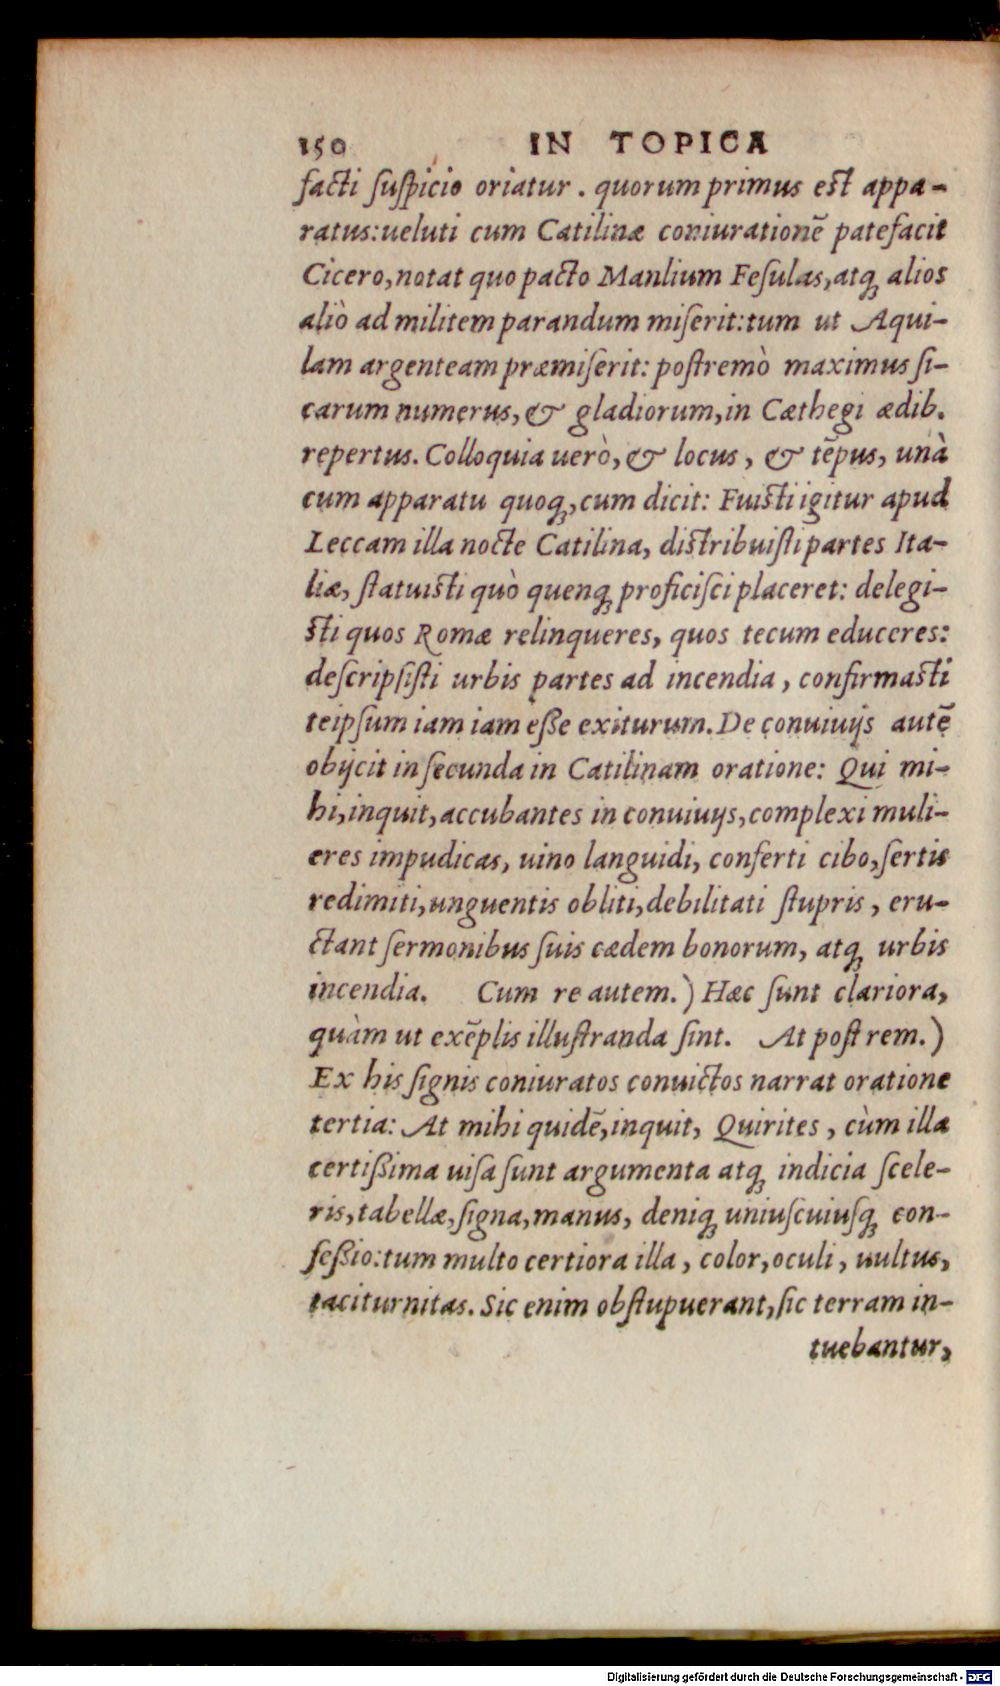 150 IN TOPICA
facti ſuſpicio oriatur . quorum primus eſt appa-
ratus:ueluti cum Catilinæ coniurationē patefacit
Cicero,notat quo pacto Manlium Feſulas,atq́ꝫ alios
aliò ad militem parandum miſerit:tum ut Aqui-
lam argenteam præmiſerit: poſtremò maximus ſi-
carum numerus,& gladiorum,in Cæthegi ædib.
repertus. Colloquia uerò,& locus , & tēpus, unà
cum apparatu quoqꝫ,cum dicit: Fuiſti igitur apud
Leccam illa nocte Catilina, diſtribuiſti partes Ita-
liæ, ſtatuiſti quò quenqꝫ proficiſci placeret: delegi-
ſti quos Romæ relinqueres, quos tecum educeres:
deſcripſiſti urbis partes ad incendia , confirmaſti
teipſum iam iam eſſe exiturum. De conuiuijs autē
obijcit in ſecunda in Catilinam oratione: Qui mi-
hi,inquit,accubantes in conuiuijs,complexi muli-
eres impudicas, uino languidi, conferti cibo,ſertis
redimiti,unguentis obliti,debilitati ſtupris , eru-
ctant ſermonibus ſuis cædem bonorum, atqꝫ urbis
incendia. Cum re autem.) Hæc ſunt clariora,
quàm ut exēplis illuſtranda ſint. At poſt rem.)
Ex his ſignis coniuratos conuictos narrat oratione
tertia: At mihi quidē,inquit, Quirites , cùm illa
certißima uiſa ſunt argumenta atqꝫ indicia ſcele-
ris,tabellæ,ſigna,manus, deniqꝫ uniuſcuiuſqꝫ con-
feßio:tum multo certiora illa , color,oculi , uultus,
taciturnitas. Sic enim obſtupuerant,ſic terram in-
tuebantur,
Digitalisierung gefördert durch die Deutsche Forschungsgemeinschaft - DFG